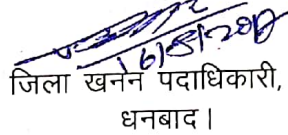 जिला खनन पदाधिकारी,
धनबाद।